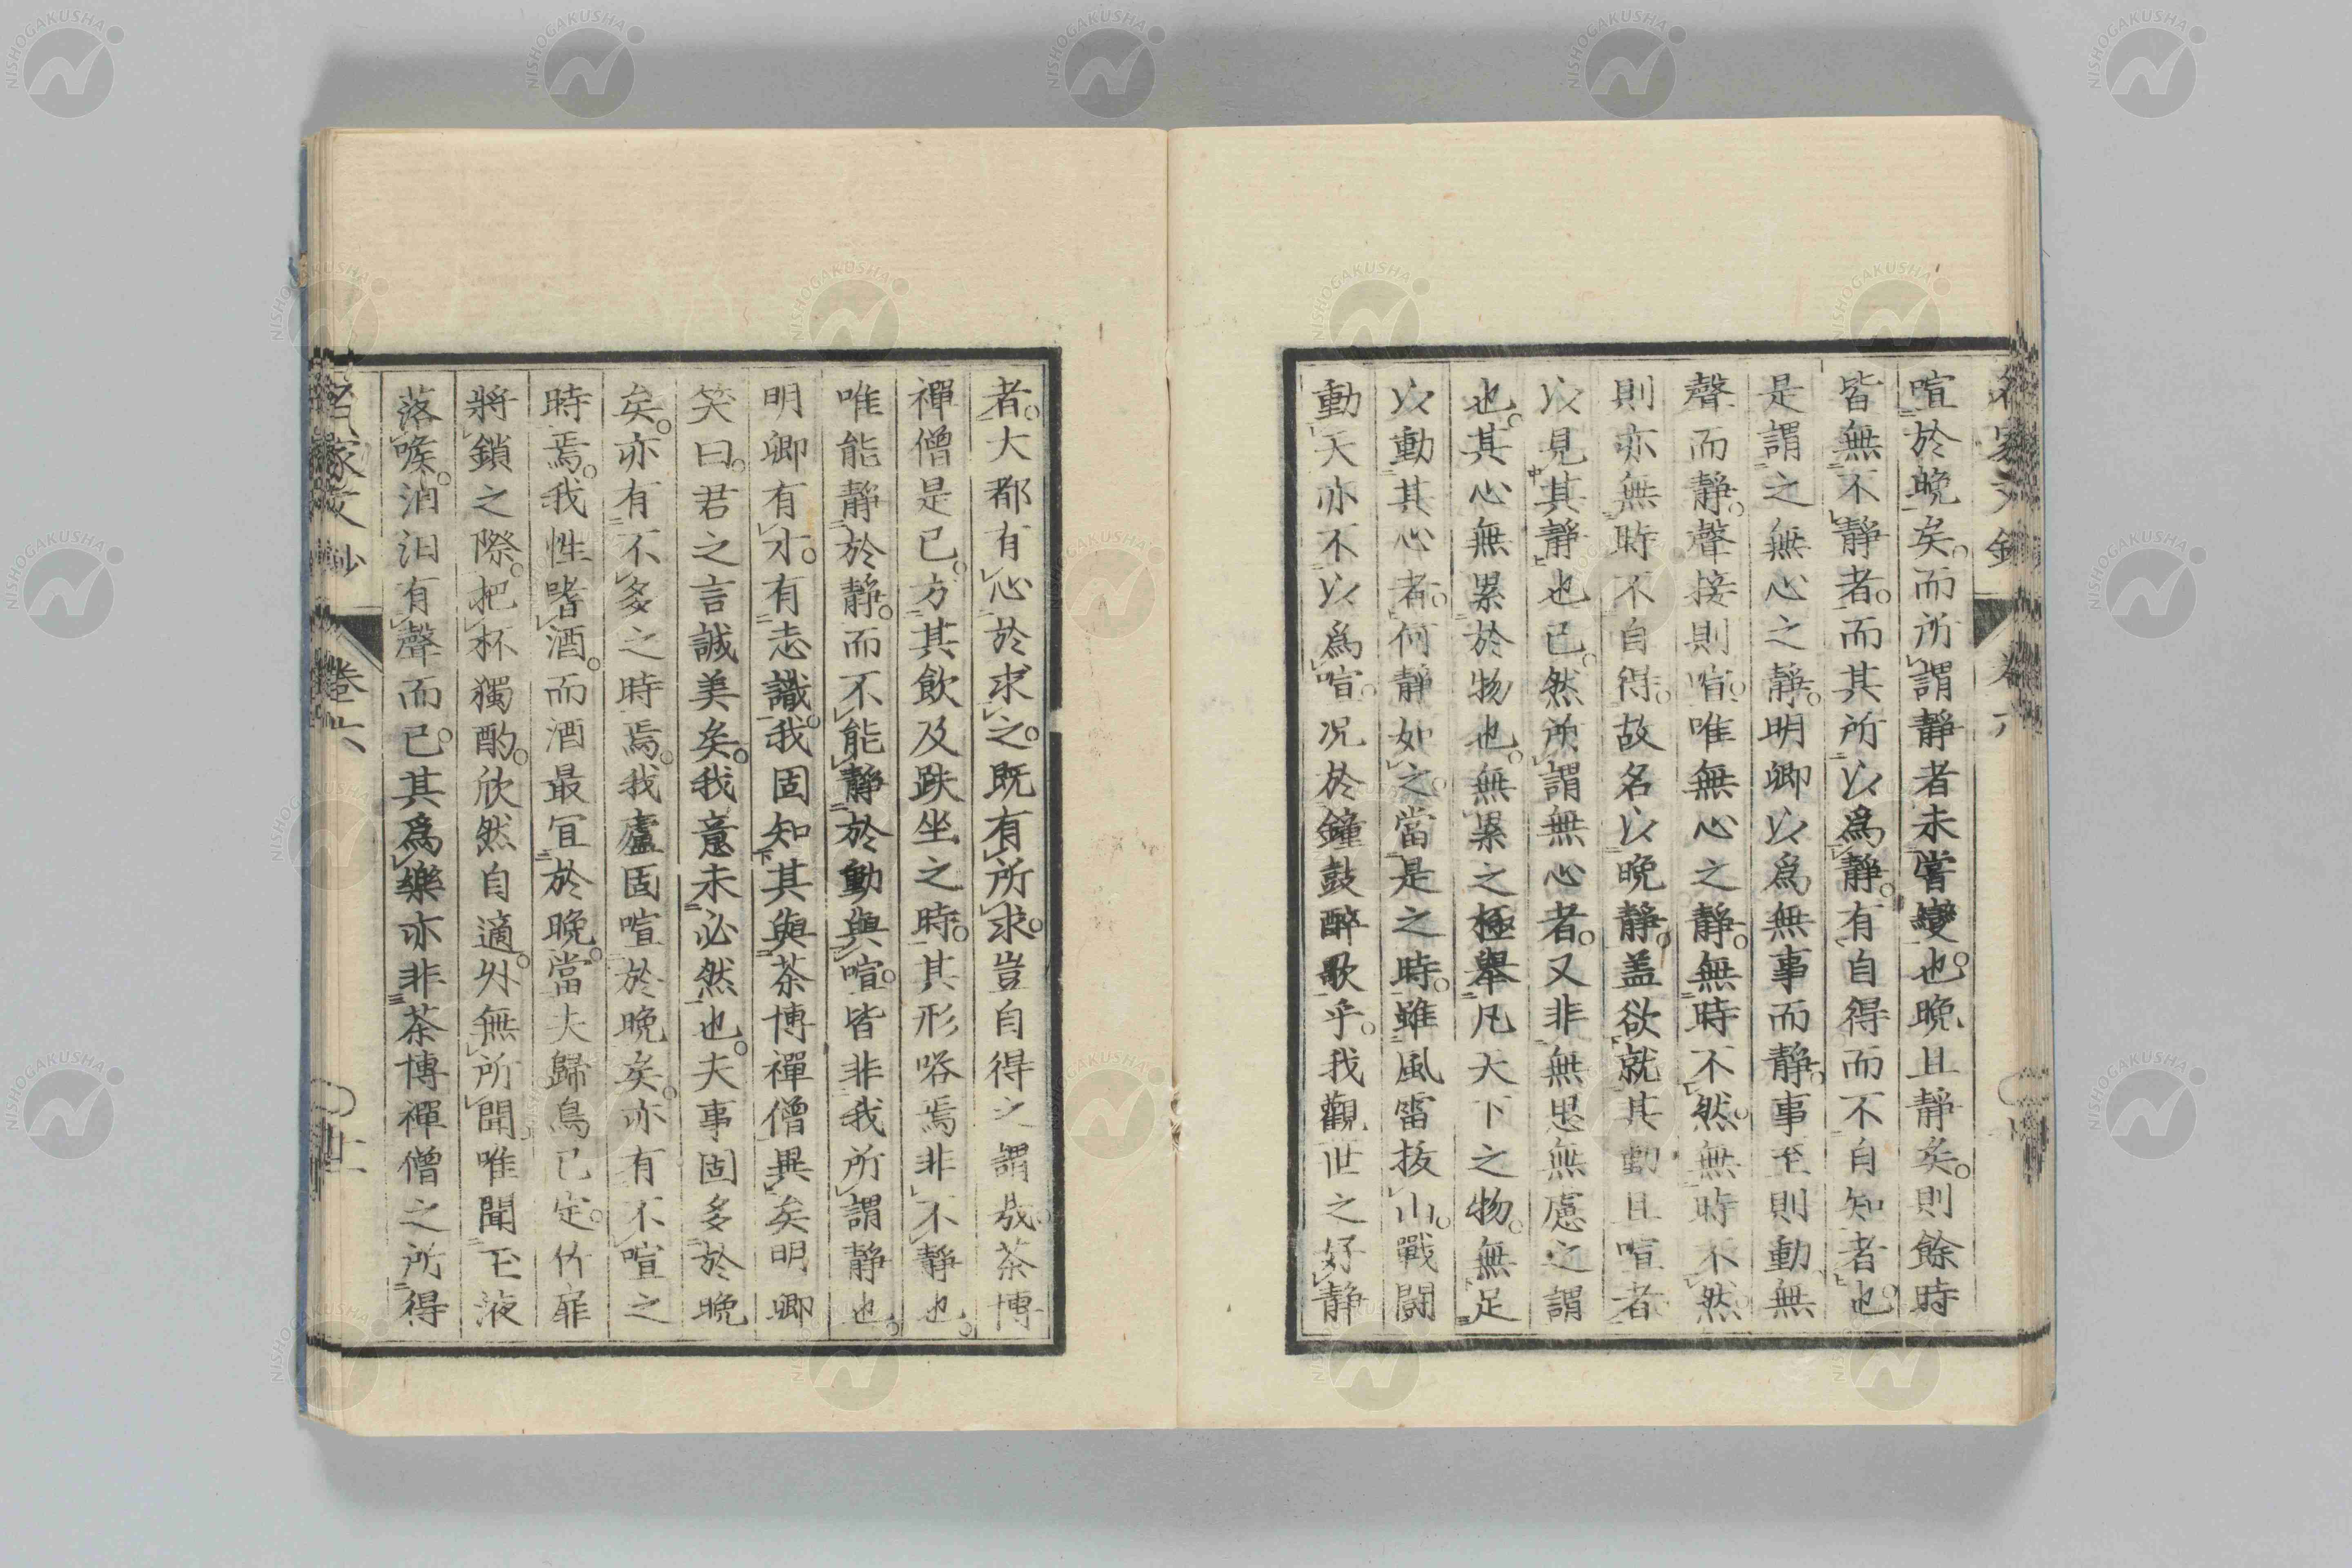 喧於晩矣。而所謂静者未嘗變也。晩且静矣。則餘時
皆無不静者。而其所以爲静。有自得而不自知者也。
是謂之無心之静。明卿以爲無事而静。事至則動。無
聲而静。聲接則喧。唯無心之静。無時不然。無時不然
則亦無時不自得。故名以晩静。盖欲就其動且喧者
以見其静也已。然所謂無心者。又非無思無慮之謂
也。其心無累於物也。無累之極。舉凡天下之物。無足
以動其心者。何静如之。當是之時。雖風雷抜山。戰闘
動天。亦不以爲喧。况於鐘鼓醉歌乎。我觀世之好静
者。大都有心於求之。既有所求。豈自得之謂哉。茶博
禪僧是已。方其飲及趺坐之時。其形嗒焉非不静也。
唯能静於静。而不能静於動與喧。皆非我所謂静也。
明卿有才。有志識。我固知其與茶博禪僧異矣。明卿
笑曰。君之言誠美矣。我意未必然也。夫事固多於晩
矣。亦有不多之時焉。我廬固喧於晩矣。亦有不喧之
時焉。我性嗜酒。而酒最宜於晩。當夫歸鳥已定。竹扉
將鎖之際。把杯獨酌。欣然自適。外無所聞。唯聞玉液
落喉。涓汨有聲而已。其爲樂亦非茶博禪僧之所得
名家文鈔
卷六